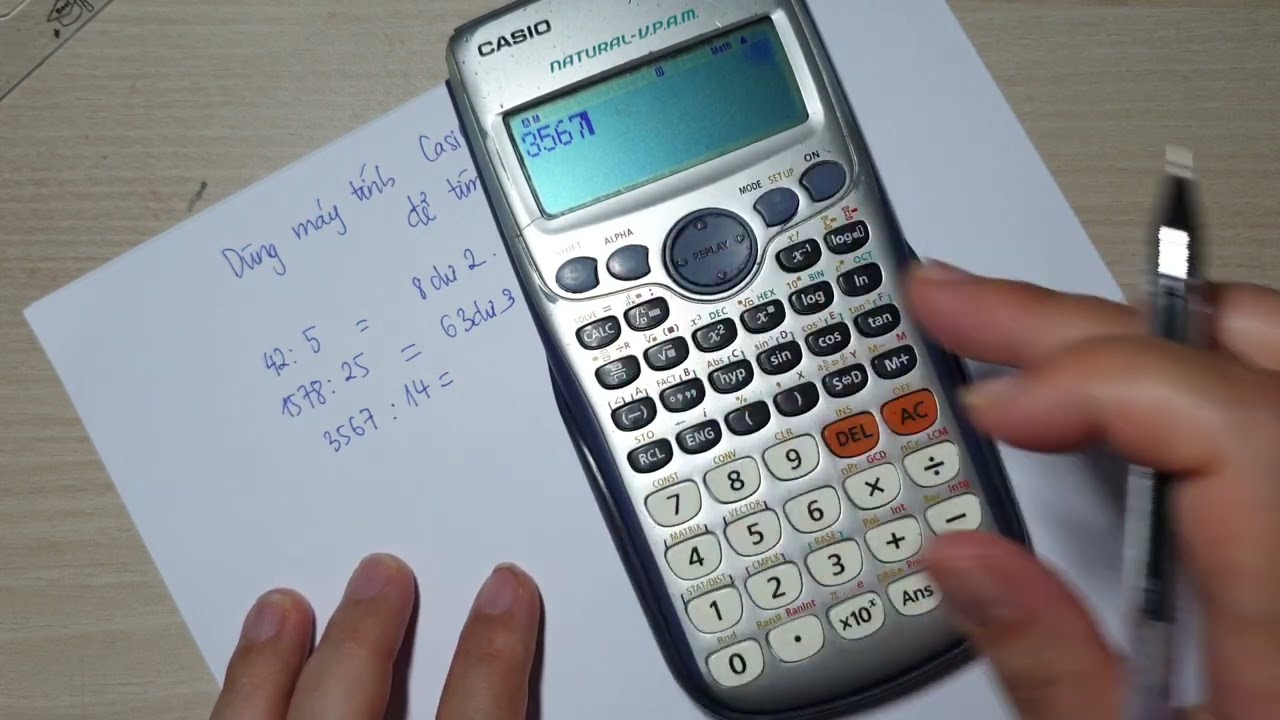 CASIO
NATURAL-V.P.A.M.
Math ▲
3567
Dùng máy tính Casi
để tìm
42 : 5 = 8 dư 2.
1578 : 25 = 63 dư 3
3567 : 14 =
ON
MODE SETUP
SHIFT ALPHA
REPLAY
x! x⁻¹ log
SOLVE = CALC
x³ DEC x² HEX 10ˣ BIN log eˣ OCT ln
÷R sin⁻¹ D cos⁻¹ E tan⁻¹ F
Abs C hyp sin cos tan
(−) FACT B °'" ( ) S⇔D M− M M+
STO RCL ENG i % , X Y
CONST CONV CLR INS OFF
7 8 9 DEL AC
MATRIX VECTOR nPr GCD nCr LCM
4 5 6 × ÷
STAT/DIST CMPLX BASE Pol Int Rec Intg
1 2 3 + −
Rnd Ran# RanInt π e
0 . ×10ˣ Ans